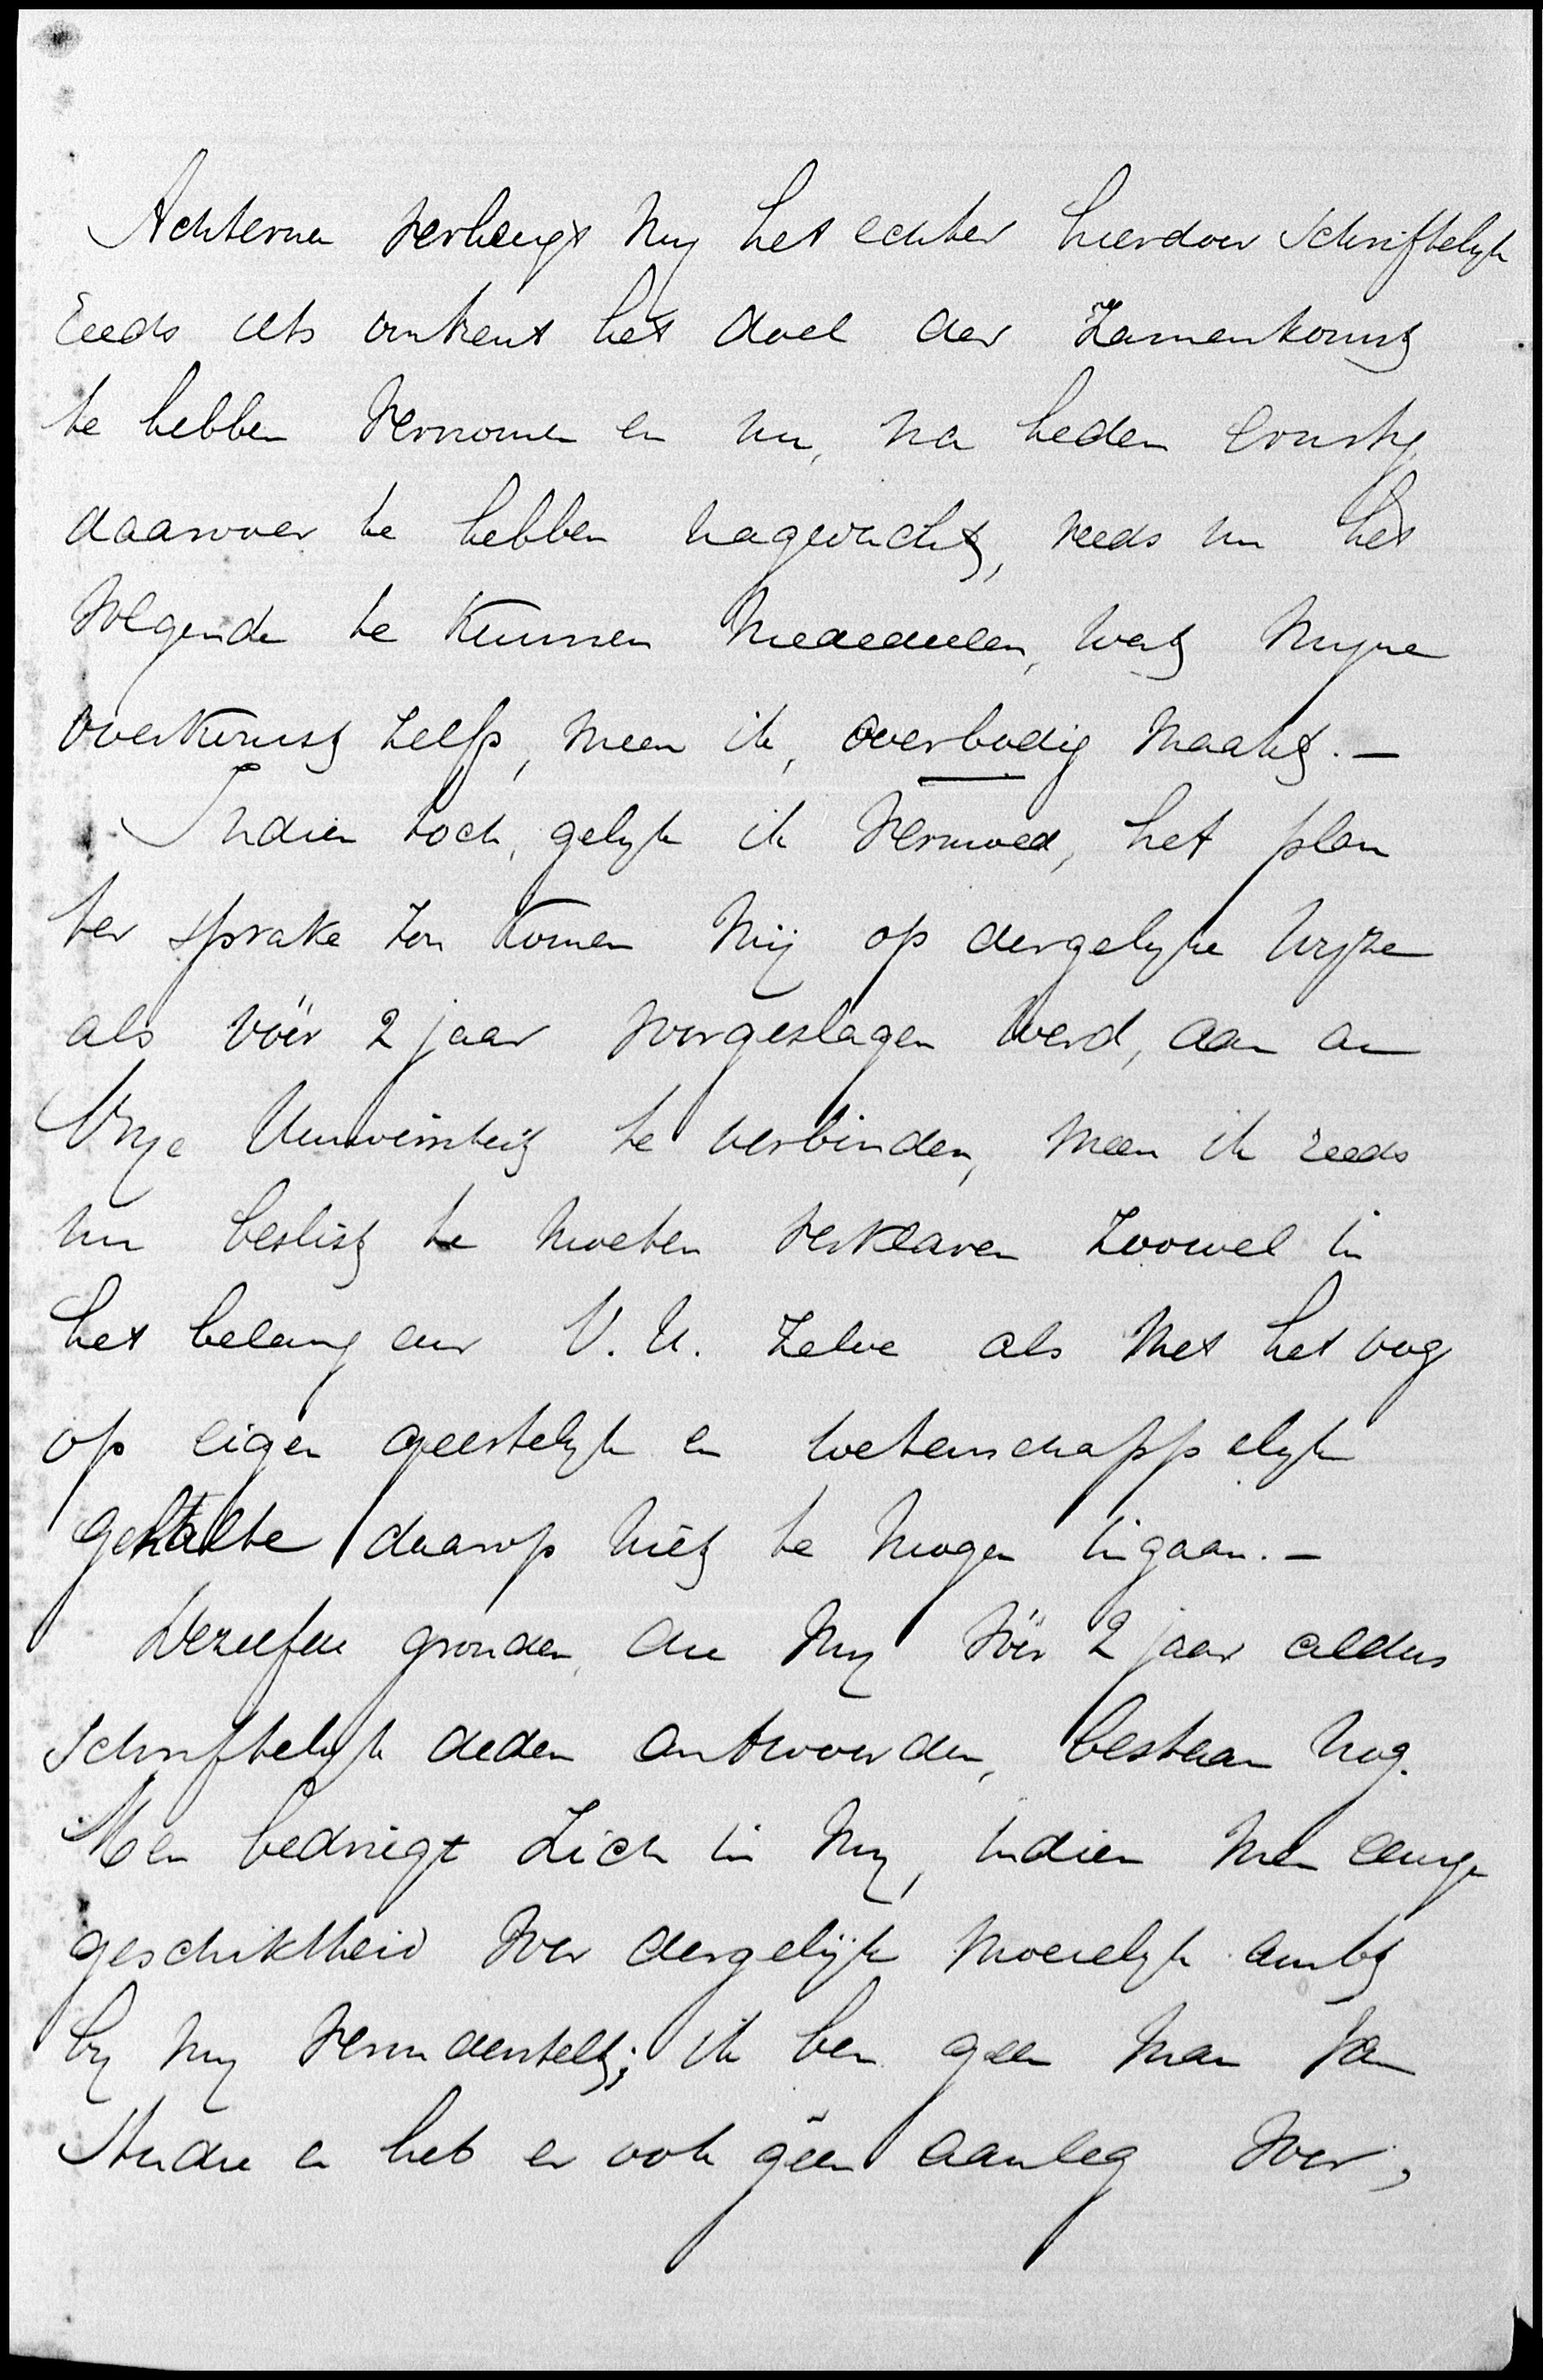 Achterna verheugt mij het echter hierdoor schriftelijk
reeds iets omtrent het doel der zamenkomst
te hebben vernomen en nu, na heden ernstig
daarover te hebben nagedacht, reeds nu het
volgende te kunnen mededeelen, wat mijne
overkomst zelfs, meen ik, overbodig maakt. –
Indien toch, gelijk ik vermoed, het plan
ter sprake zou komen mij op dergelijke wijze
als vóór 2 jaar voorgeslagen werd, aan de
Vrije Universiteit te verbinden, meen ik reeds
nu beslist te moeten verklaren zoowel in
het belang der V. U. zelve als met het oog
op eigen geestelijk en wetenschappelijk
gehalte daarop niet te mogen ingaan. –
Dezelfde gronden, die mij vóór 2 jaar aldus
schriftelijk deden antwoorden, bestaan nog.
Men bedriegt zich in mij, indien men eenige
geschiktheid voor dergelijk moeielijk ambt
bij mij veronderstelt; ik ben geen man van
studie en heb er ook géén aanleg voor;